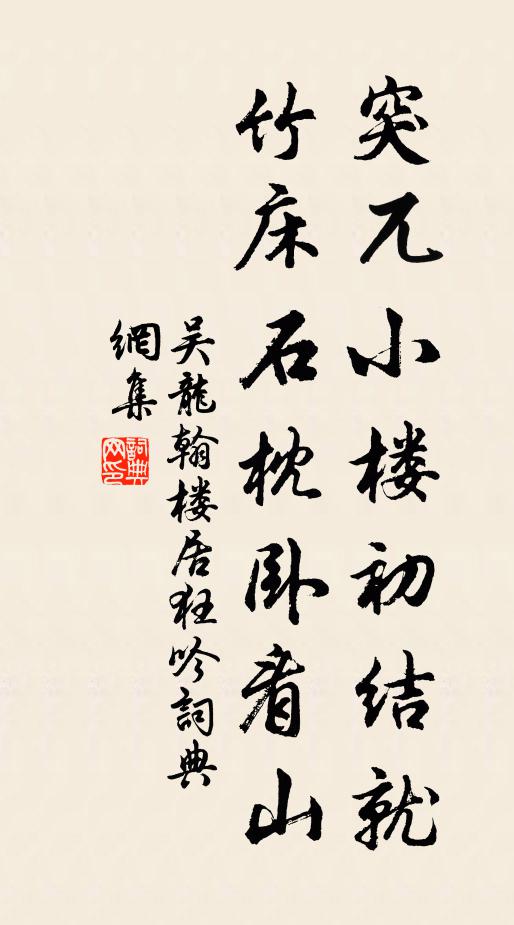 突兀小楼初结就
竹床石枕卧看山
吴龍翰楼居狂吟詞典
網集
詞典
网印